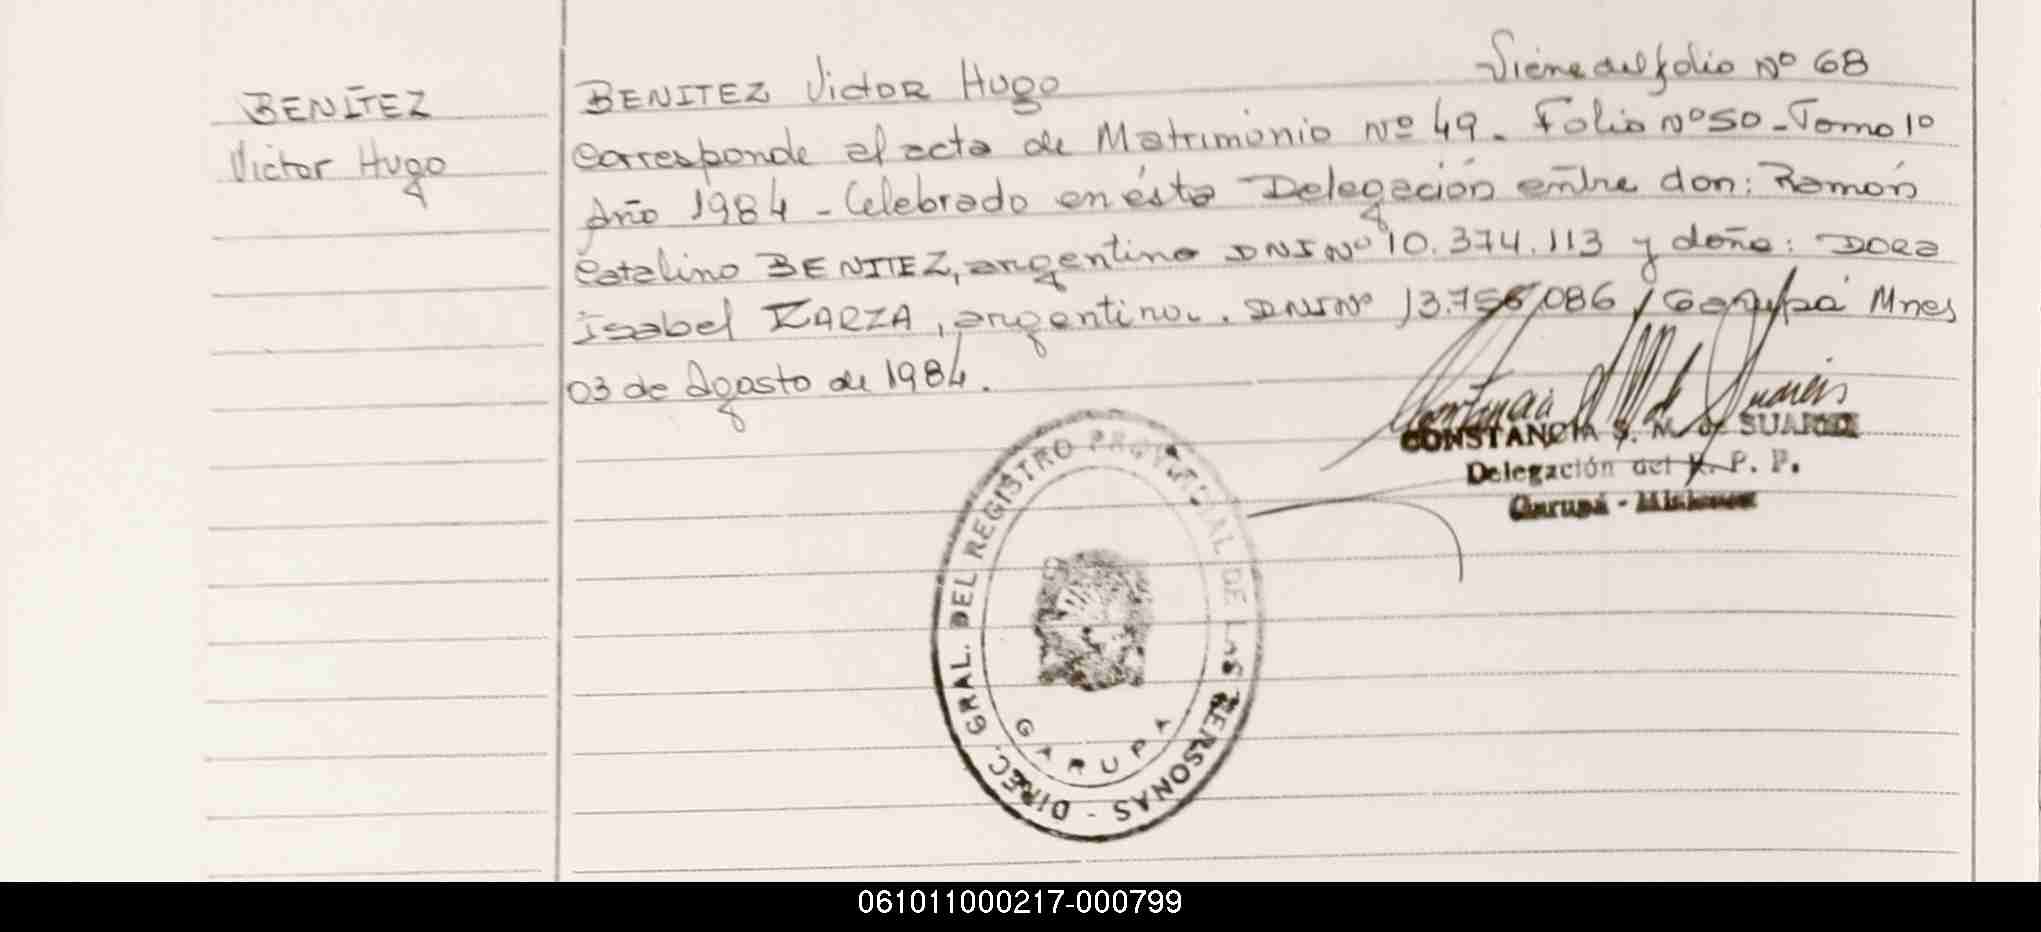 BENÍTEZ
Victor Hugo
Viene del folio Nº 68
BENITEZ Victor Hugo
corresponde al acta de Matrimonio Nº 49. Folio Nº 50 - Tomo 1º
Año 1984 - Celebrado en ésta Delegación entre don: Ramón
Catalino BENITEZ, argentino DNI Nº 10.374.113 y doña: Dora
Isabel ZARZA, argentina. DNI Nº 13.756.086, Garupá Mnes
03 de Agosto de 1984.
CONSTANCIA S. M. de SUAREZ
Delegación del R. P. P.
Garupá - Misiones
DIREC. GRAL. DEL REGISTRO PROVINCIAL DE LAS PERSONAS -
GARUPA
061011000217-000799